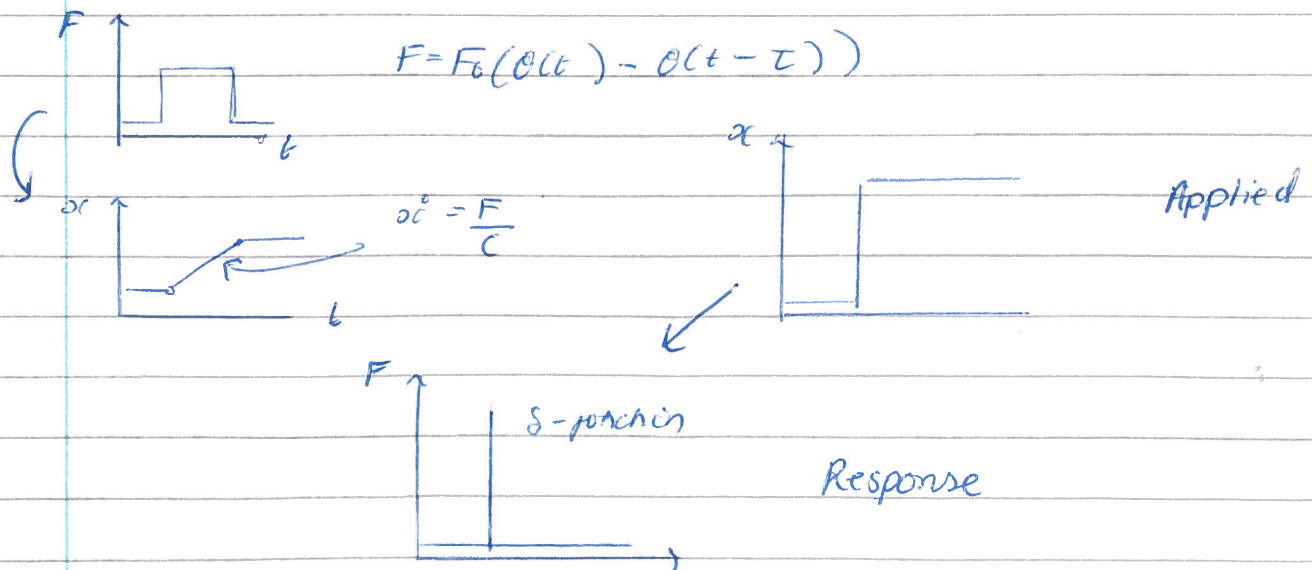 F
F = F₀(θ(t) - θ(t - τ))
t
x
ẋ = F/C
t
x
Applied
F
δ-function
Response